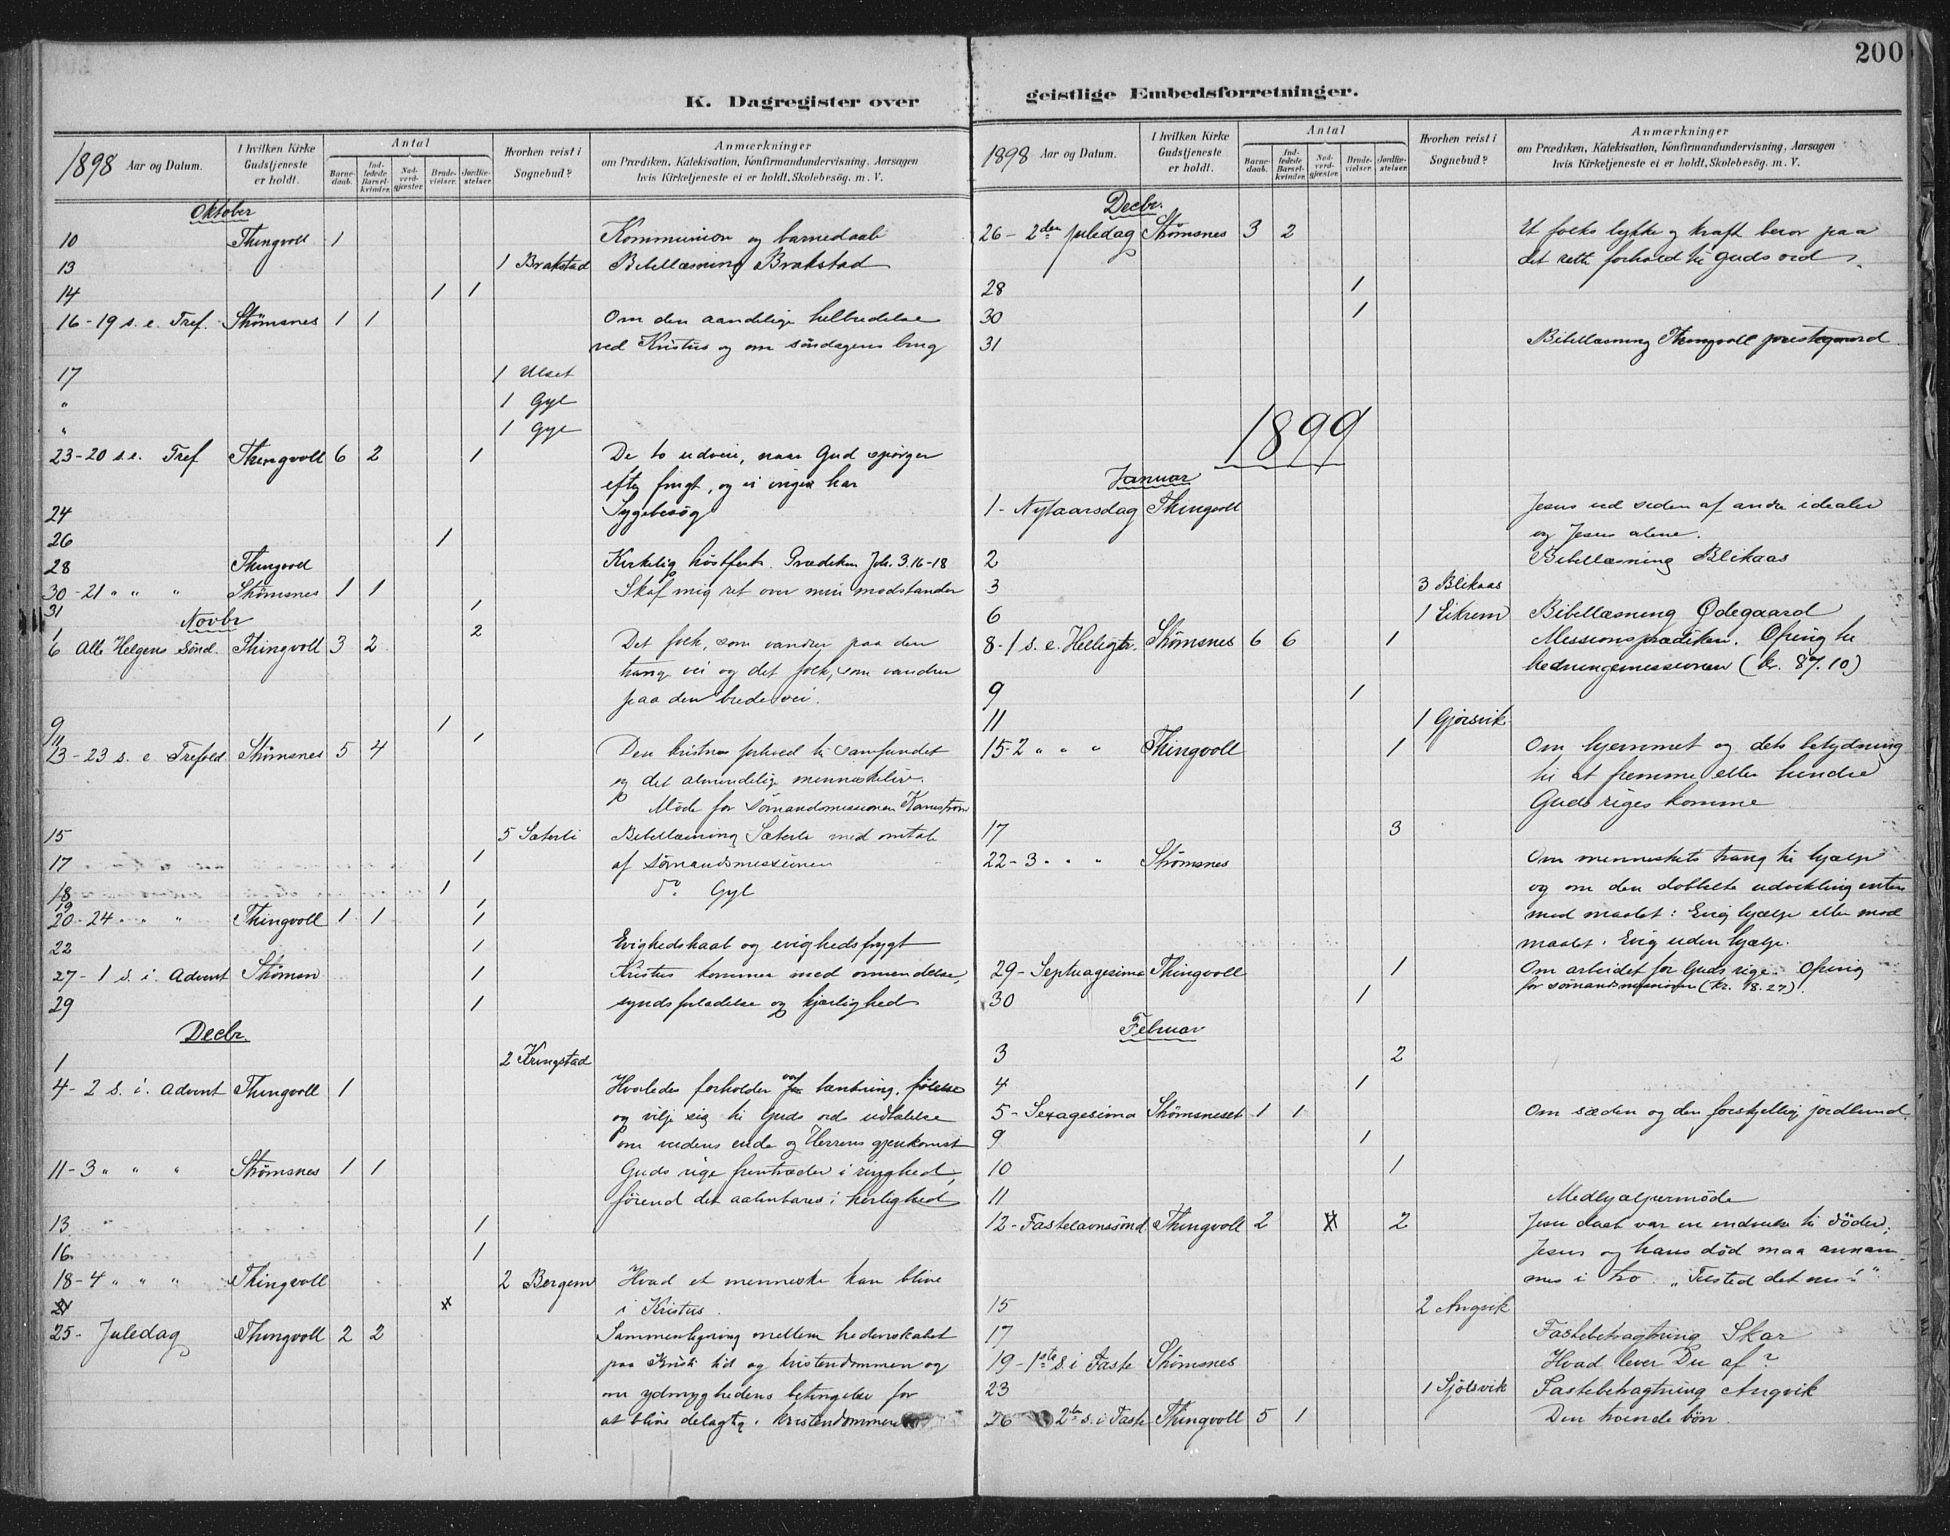 200
K. Dagregister over
1898 Aar og Datum. I hvilken Kirke Gudstjeneste er holdt. Antal Barnedaab. Indledede Barselkvinder. Nadverdgjæster. Brudevielser. Jordfæstelser. Hvorhen reist i Sognebud? Anmærkninger om Prædiken, Katekisation, Konfirmandundervisning, Aarsagen hvis Kirketjeneste ei er holdt, Skolebesøg. m. V.
Oktober
10 Thingvoll 1 Kommunion og barnedaab
13 1 Brakstad Bibellæsning Brakstad
14 1 1
16 - 19 s. e. Tref. Strømsnes 1 1 Om den aandelige helbredelse
ved Kristus og om søndagens brug
17 1 Ulset
" 1 Gyl
" 1 Gyl
23 - 20 s. e. Tref Thingvoll 6 2 1 De to udveie, naar Gud spørger
efter frugt, og vi ingen har
24 Sygebesøg
26 1
28 Thingvoll Kirkelig høstfest. Prædiken Joh. 3.16-18
30 - 21 " " " Strømsnes 1 1 Skaf mig ret over min modstander
31 1
Novbr
1 2
6 Alle Helgens Sønd. Thingvoll 3 2 Det folk, som vandrer paa den
trange vei og det folk, som vandrer
paa den brede vei.
9 1
11 1
13 - 23 s. e. Trefold. Strømsnes 5 4 Den kristnes forhold til samfundet
og det almindelige menneskeliv.
Møde for sømandsmissionen
15 5 Sæterli Bibellæsning Sæterli med omtale
17 1 af sømandsmissionen
18 1 do Gyl
19 1
20 - 24 " " " Thingvoll 1 1 1
22 1 Evighedshaab og evighedsfrygt
27 - 1 s. i. Advent Strømsn 1 Kristus kommer med omvendelse,
29 1 syndsforladelse og kjærlighed
Decbr.
1 2 Kringstad
4 - 2 s. i. Advent Thingvoll 1 Hvorledes forholder vor tænkning, følelse
og vilje sig til Guds ords udtalelse
om verdens ende og Herrens gjenkomst
11 - 3 " " " Strømsnes 1 1 Guds rige fremtræder i ringhed,
førend det aabenbares i herlighed
13 1
16 1
18 - 4 " " " Thingvoll 2 Bergem Hvad et menneske kan blive
21 i Kristus.
25 - Juledag Thingvoll 2 2 Sammenligning mellem hedenskabet
paa Kristi tid og kristendommen og
om ydmyghedens betingelse for
at blive delagtig i kristendommen
geistlige Embedsforretninger.
1898 Aar og Datum. I hvilken Kirke Gudstjeneste er holdt. Antal Barnedaab. Indledede Barselkvinder. Nadverdgjæster. Brudevielser. Jordfæstelser. Hvorhen reist i Sognebud? Anmærkninger om Prædiken, Katekisation, Konfirmandundervisning, Aarsagen hvis Kirketjeneste ei er holdt, Skolebesøg. m. V.
Decbr.
26 - 2den Juledag Strømsnes 3 2 Et folks lykke og kraft beror paa
det rette forhold til Guds ord
28 1
30 1
31 Bibellæsning Thingvoll prestegaard
1899
Januar
1 - Nytaarsdag Thingvoll Jesus ved siden af andre idealer
og Jesus alene.
2 Bibellæsning Blikaas
3 3 Blikaas
6 1 Eikrem Bibellæsning Ødegaard
8 - 1 s. e. Helligtr. Strømsnes 6 6 1 Missionsprædiken. Ofring til
hedningemissionen (kr. 87.10)
9 1
11 1 Gjørsvik
15 - 2 " " " Thingvoll 1 Om hjemmet og dets betydning
til at fremme eller hindre
Guds riges komme
17 3
22 - 3 " " " Strømsnes Om menneskets trang til hjælp
og om den dobbelte udvikling enten
med maalet: Evig hjælp eller med
maalet: Evig uden hjælp.
29 - Septuagesima Thingvoll 1 Om arbeidet for Guds rige. Ofring
30 1 for sømandsmissionen (kr. 18.27).
Februar
3 2
4 1
5 - Sexagesima Strømsneset 1 1 Om sæden og den forskjellige jordbund.
9 1
10 1
11 Medhjælpermøde
12 - Fastelavnssønd Thingvoll 2 2 Jesu daab var en indvielse til døden;
Jesus og hans død maa annam-
mes i tro.
15 2 Angvik
17 Fastebetragtning Skar
19 - 1ste s. i Faste Strømsnes Hvad lever Du af?
23 1 Sjølsvik Fastebetragtning Angvik
26 2den s. i Faste Thingvoll 5 1 Den troende bøn.